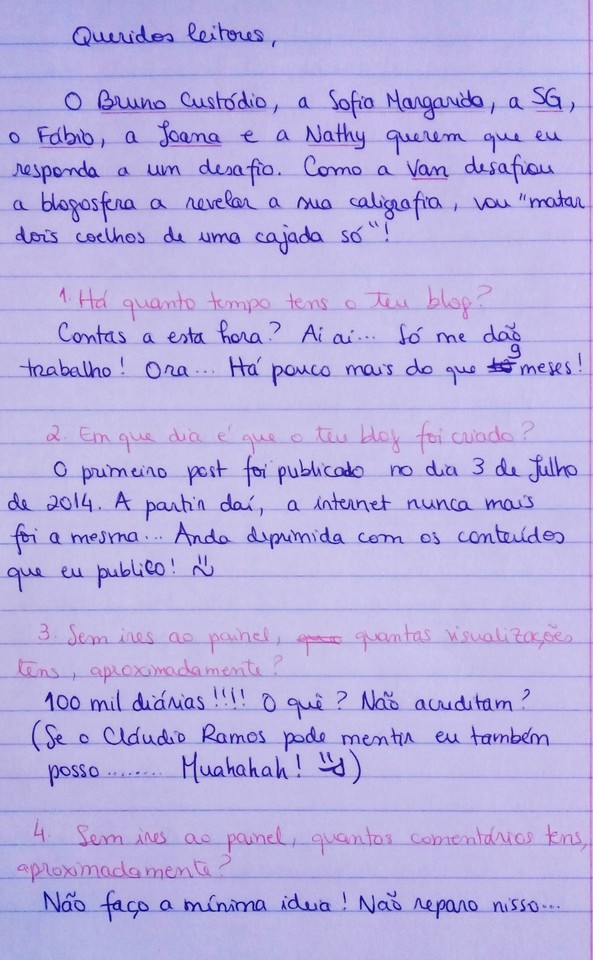 Queridos leitores,
O Bruno Custódio, a Sofia Margarida, a SG,
o Fábio, a Joana e a Nathy querem que eu
responda a um desafio. Como a Van desafiou
a blogosfera a revelar a sua caligrafia, vou "matar
dois coelhos de uma cajada só"!
1. Há quanto tempo tens o teu blog?
Contas a esta hora? Ai ai... Só me dão
trabalho! Ora... Há pouco mais do que 9 meses!
2. Em que dia é que o teu blog foi criado?
O primeiro post foi publicado no dia 3 de Julho
de 2014. A partir daí, a internet nunca mais
foi a mesma... Anda deprimida com os conteúdos
que eu publico! =)
3. Sem ires ao painel, quantas visualizações
tens, aproximadamente?
100 mil diárias!!!! O quê? Não acreditam?
(Se o Cláudio Ramos pode mentir eu também
posso......... Muahahah! =D)
4. Sem ires ao painel, quantos comentários tens,
aproximadamente?
Não faço a mínima ideia! Não reparo nisso...